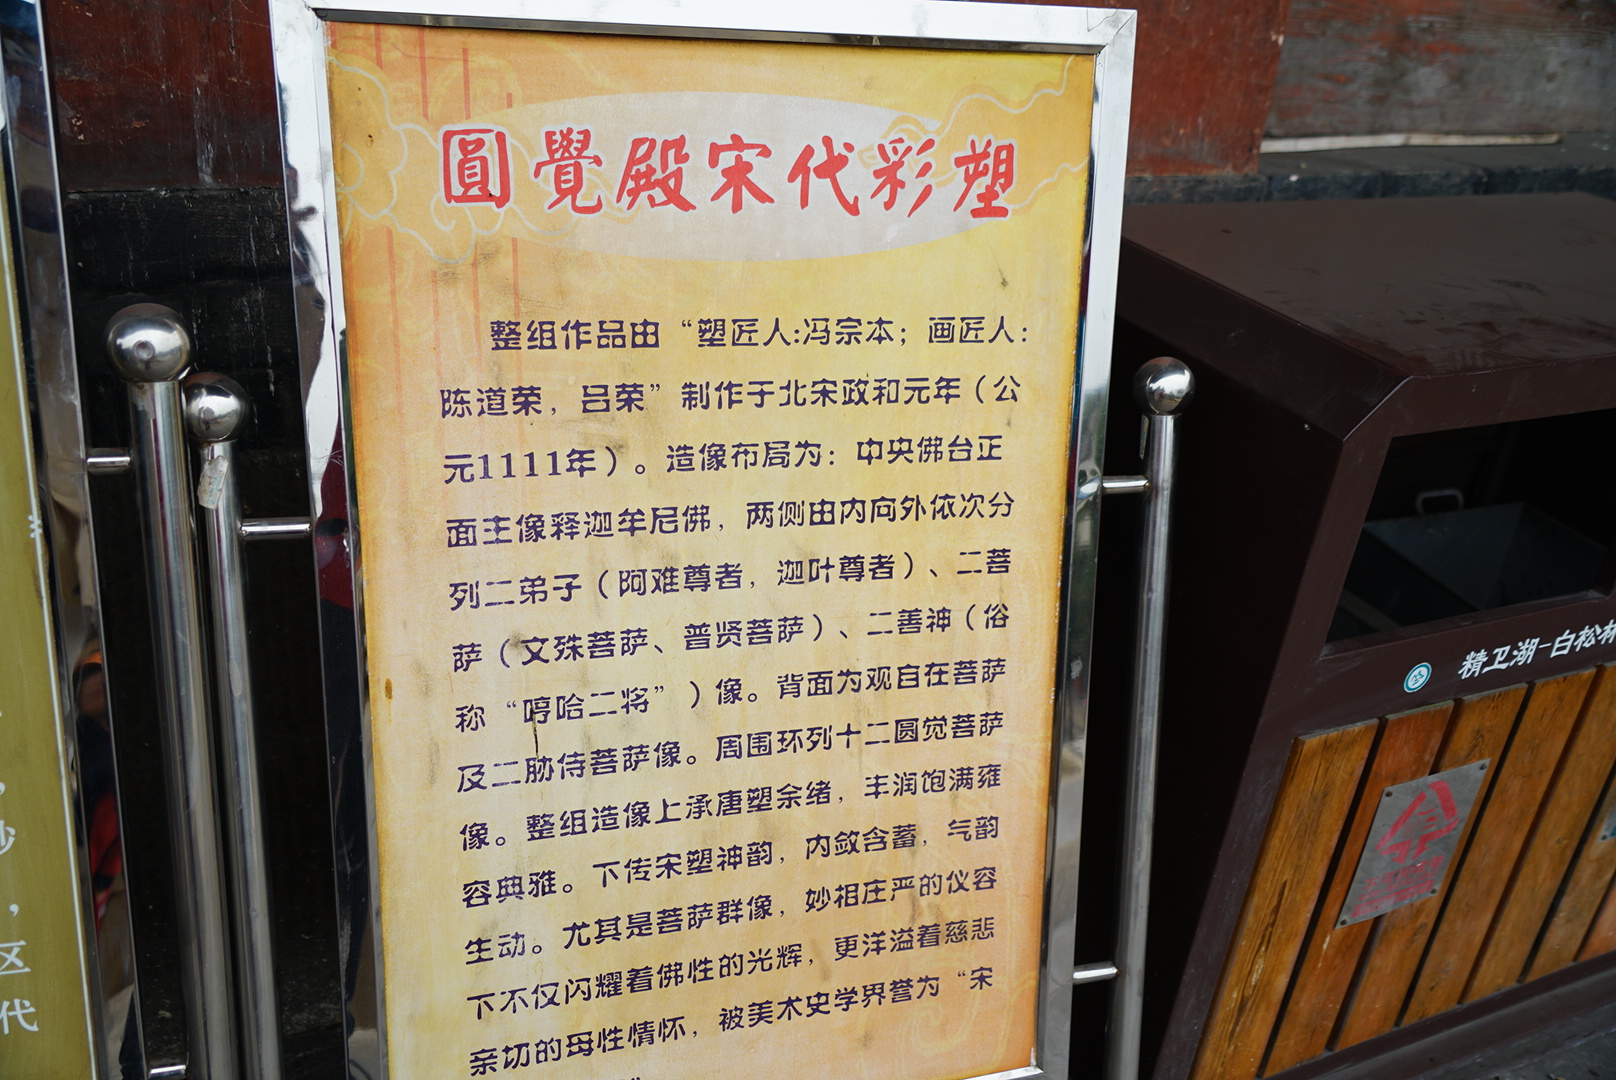 圓覺殿宋代彩塑
整组作品由“塑匠人:冯宗本；画匠人：
陈道荣，吕荣”制作于北宋政和元年（公
元1111年）。造像布局为：中央佛台正
面主像释迦牟尼佛，两侧由内向外依次分
列二弟子（阿难尊者，迦叶尊者）、二菩
萨（文殊菩萨、普贤菩萨）、二善神（俗
称“哼哈二将”）像。背面为观自在菩萨
及二胁侍菩萨像。周围环列十二圆觉菩萨
像。整组造像上承唐塑余绪，丰润饱满雍
容典雅。下传宋塑神韵，内敛含蓄，气韵
生动。尤其是菩萨群像，妙相庄严的仪容
下不仅闪耀着佛性的光辉，更洋溢着慈悲
亲切的母性情怀，被美术史学界誉为“宋
精卫湖-白松林
，区
代